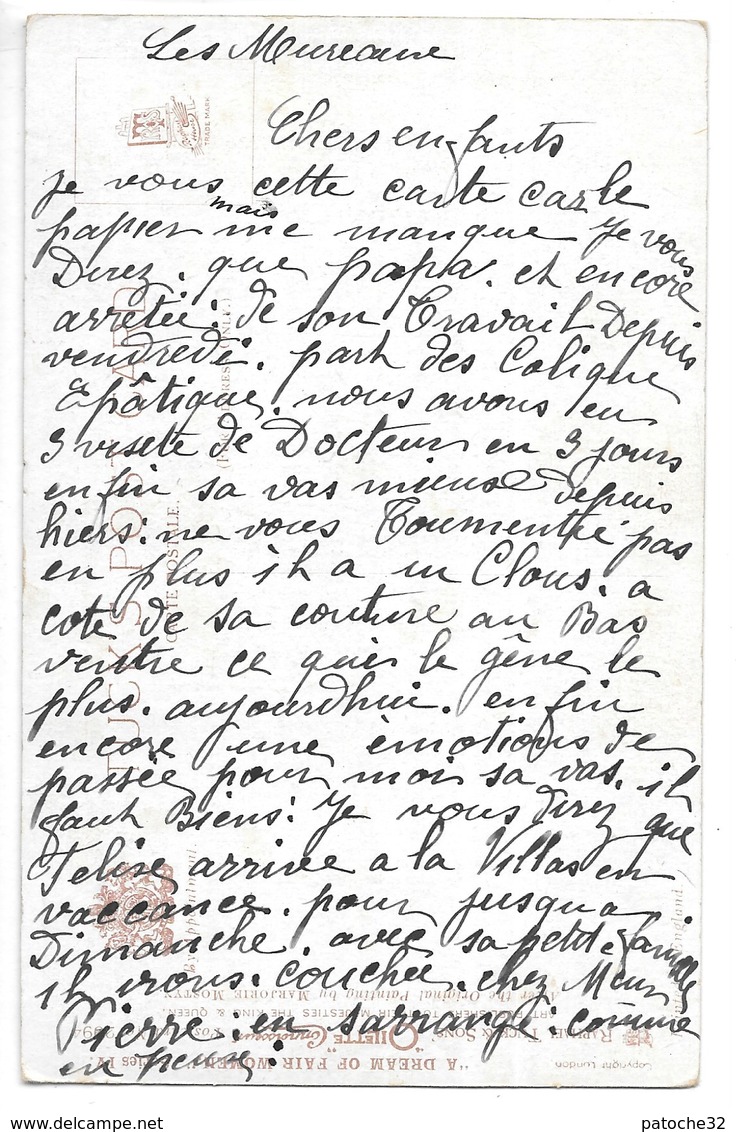 Les Mureaux
Chers enfants
je vous cette carte car le
papier mais me manque Je vous
Direz. que papa. et encore
arrêtié: de son Travail Depuis
vendredi. part des Colique
Epâtique. nous avons eu
3 visite de Docteur en 3 jours
enfin sa vas mieux depuis
hiers: ne vous Tourmentié pas
en plus il a un Clous. a
coté de sa couture au Bas
ventre ce qui le gêne le
plus. aujourdhui. enfin
encore une émotions de
passée pour moi sa vas. il
faut Biens: Je vous direz que
Felise arrive a la Villas en
vaccance. pour jusqua
Dimanche. avec sa petit. famille
il vrons. couchée. chez Meur
Pierre. en sarrange comme
en peuve:
TRADE MARK
TUCK'S POST CARD
CARTE POSTALE.
By Appointment.
"A DREAM OF FAIR WOMEN" Series IV
RAPHAEL TUCK & SONS' "OILETTE"
ART PUBLISHERS TO THEIR MAJESTIES THE KING & QUEEN.
After the Original Painting by MARJORIE MOSTYN
Copyright London
England
patoche32